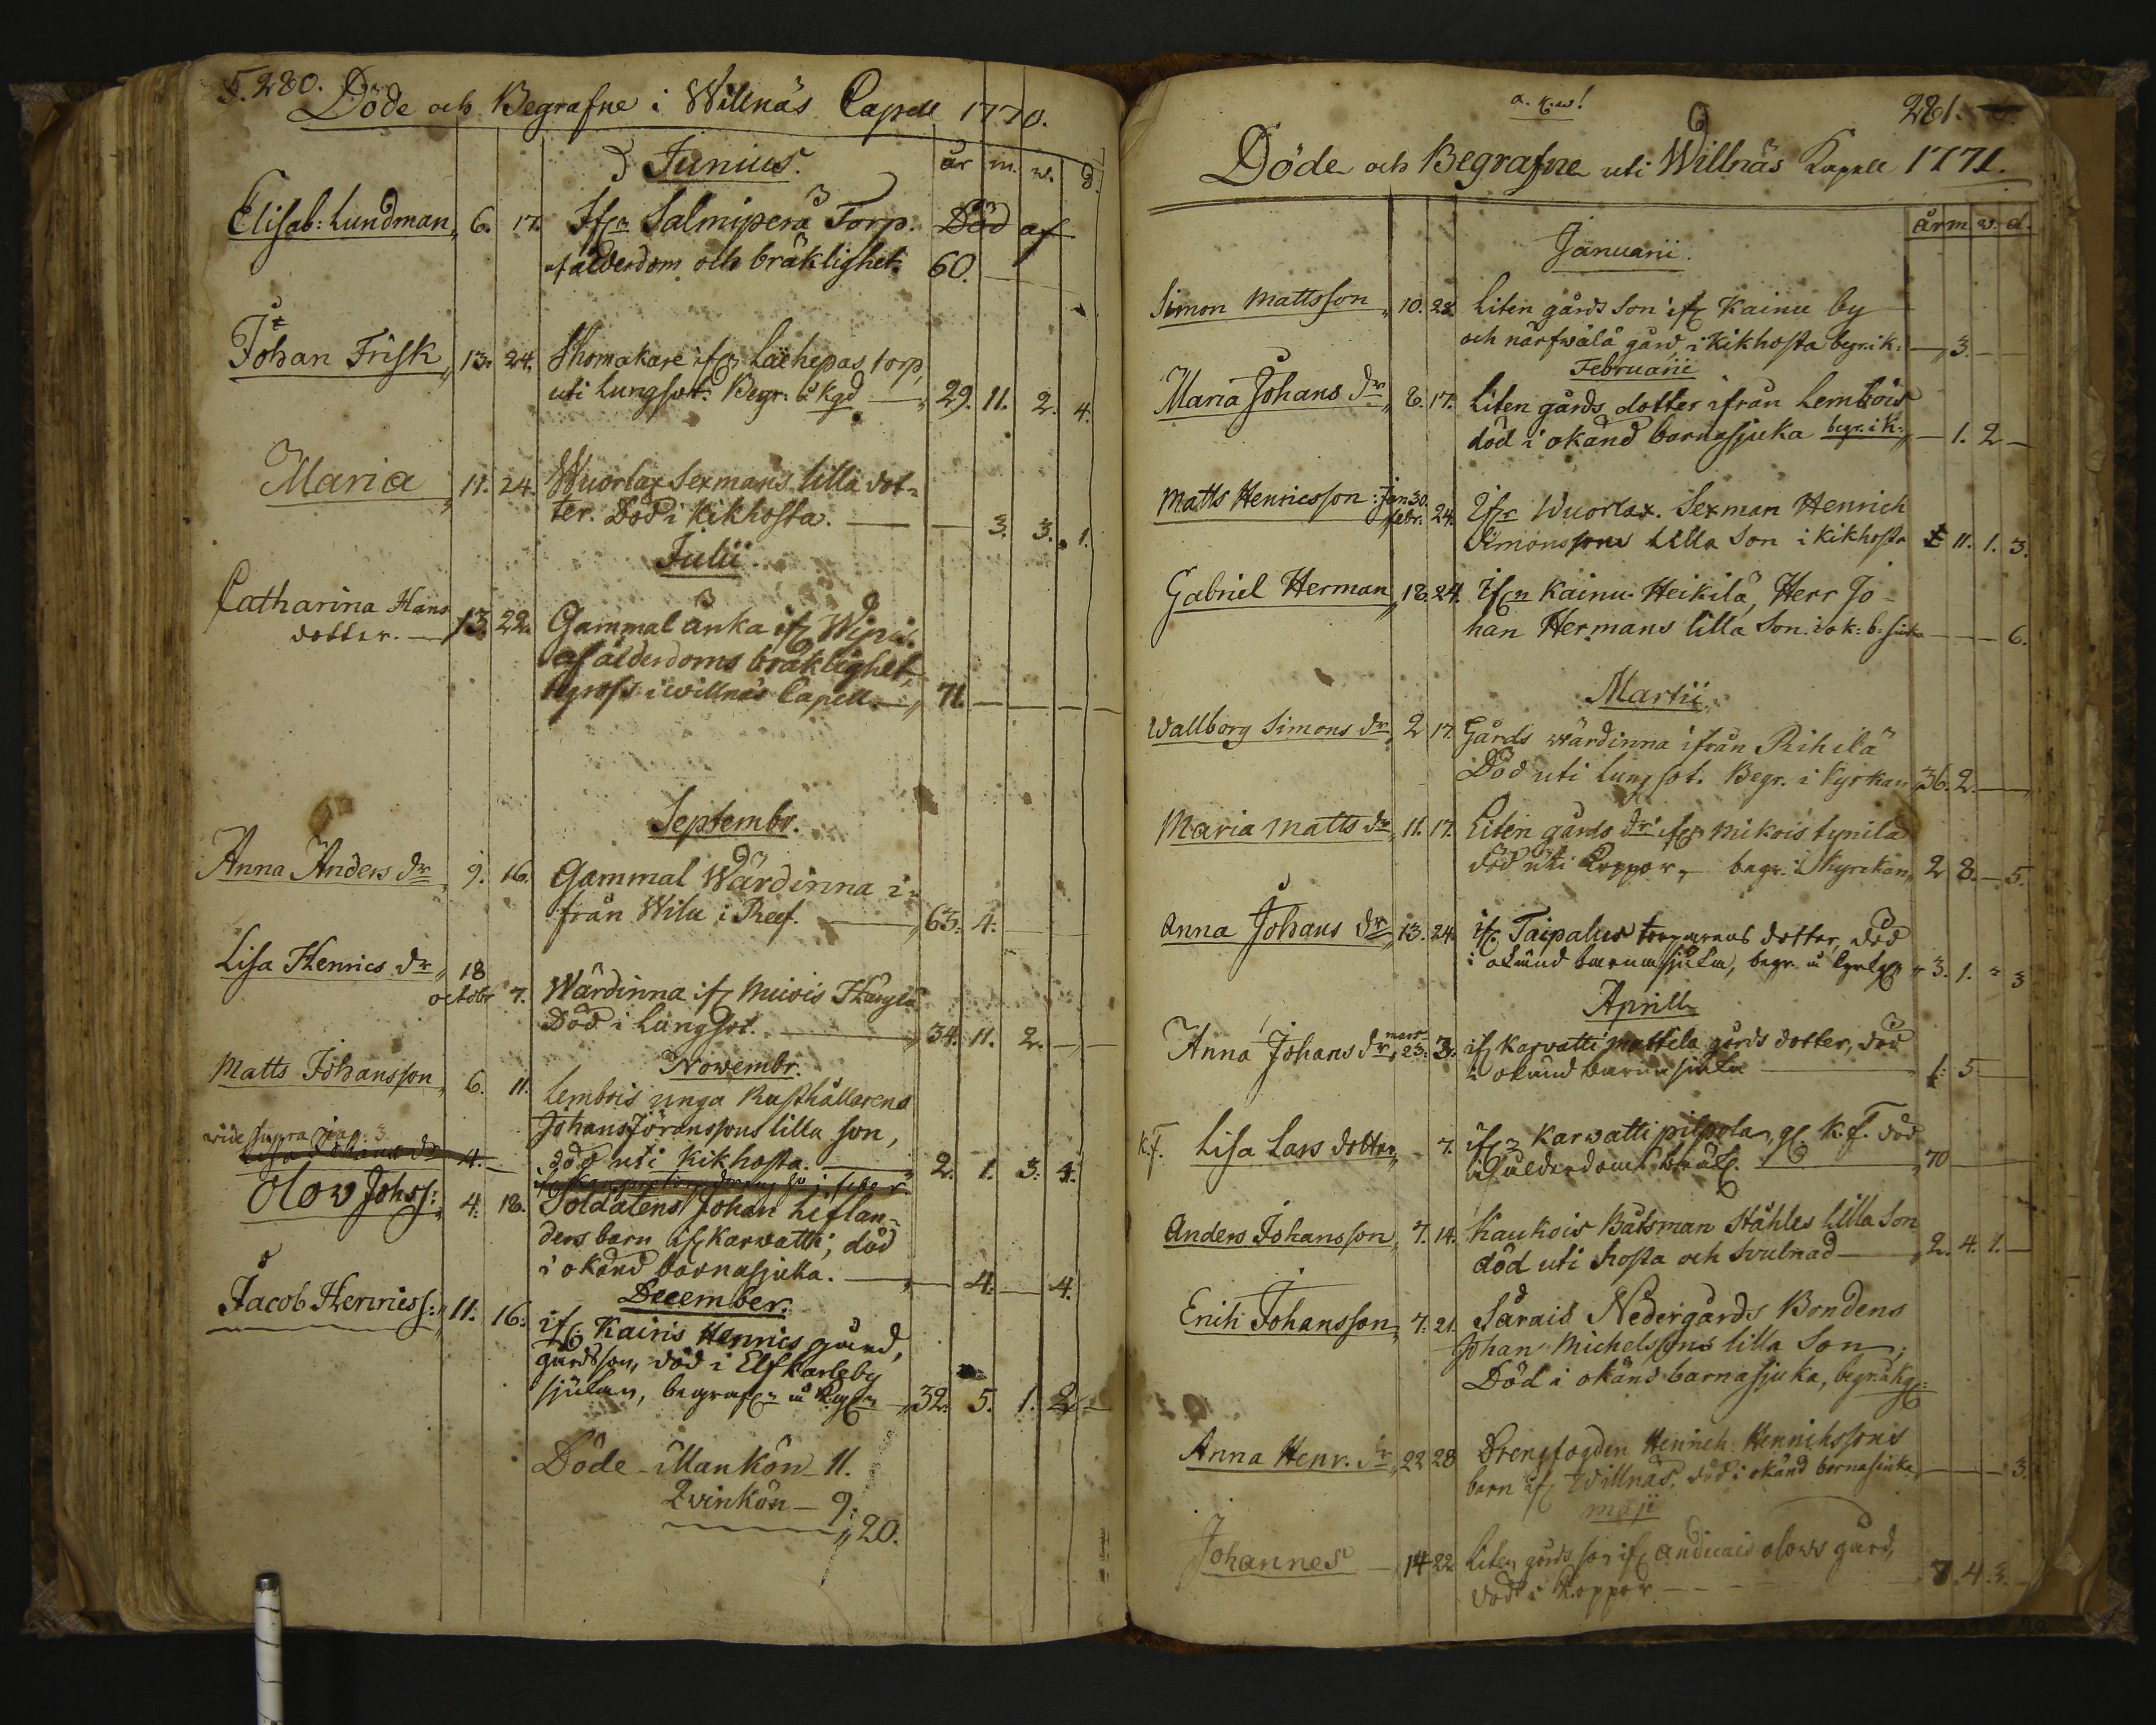 S. 280.
Döde och Begrafne i Willnäs Capell 1770.
Junius. år m. w. d.
Elisab: Lundman 6. 17. Ifrn Salmiperä Torp. Död af
af ålderdom och bräklighet. 60.
Johan Frisk 13. 24. Skomakare ifrn Laehepas torp,
uti Lungsot. Begr. å Kgd 29. 11. 2. 4.
Maria 11. 24. Wuorlax Sexmans lilla dot-
ter. Död i Kikhosta. 3. 3. 1.
Julii
Catharina Hans
dotter. 13. 22. Gammal änka ifr
af ålderdoms bräklighet,
begrofs i willnäs Capell 71.
Septembr.
Anna Anders dr 9. 16. Gammal Wärdinna i-
från Wilu i Reef. 63. 4.
Lisa Henrics dr 18
octobr 7. Wärdinna ifr
Död i Lungsot. 34. 11. 2.
Novembr.
Matts Johansson 6. 11. Lembois unga Rusthållarens
Johans Jöranssons lilla son,
död uti Kikhosta. 2. 1. 3. 4.
wide supra pag: 3.
Lisa Johans dr 4.
Olow Johss: 4. 18. Soldatens Johan Liflan-
ders barn ifr Karvatti, död
i okänd barnasjuka. 4. 4.
December.
Jacob Henricss: 11. 16. ifr. Kairis Henrics gård,
gårdsson, död i Elfkarleby
sjukan, begrafen å Kgn 32. 5. 1. 2.
Döde Mankön 11.
Qvinkön 9.
20.
a. k. w!
281.
Döde och Begrafne uti Willnäs Kapell 1771.
år m. w. d.
Januarii.
Simon Mattsson 10. 28. Liten gårds son ifr Kainu by
och närfwälä gård, i Kikhosta begr. i k: 3.
Februarii
Maria Johans dr 8. 17. Liten gårds dotter ifrån Lembois
död i okänd barnasjuka begr. i K: 1. 2
Matts Henricsson Jan 30.
febr. 24. Ifr Wuorlax. Sexman Henrich
Simonssons lilla Son i Kikhosta 11. 1. 3.
Gabriel Herman 18. 24. Ifrn Kainu Heikilä, Herr Jo-
han Hermans lilla Son. i ok: b: siuka 6.
Martii
Wallborg Simons dr 2 17. Gårds wärdinna ifrån Rihilä
Död uti lungsot. Begr. i Kyrkan 36. 2.
Maria Matts dr 11. 17. Liten gårds dr ifrn Mikois tynilä
död uti Koppor, begr. i Kyrckan 2 8. 5.
Anna Johans dr 13. 24. ifr. Taipalus torparens dotter, död
i okänd barnasjuka, begr. 3. 1. 3
Aprill
Anna Johans dr mars 23. 3. ifr Karvatti Mattela gårds dotter, död
i okänd barnasjuka 1. 5
K.f. Lisa Lars dotter 7. ifrn Karvatti pilpola, gl. K.f. död
70
Anders Johansson 7. 14. Kaukois Båtsman Ståhles lilla Son
död uti hosta och svulnad 2. 4. 1.
Erich Johansson 7. 21. Särais Nedergårds Bondens
Johan Michelssons lilla Son,
Död i okänd barnasjuka, begr å kg:
Anna Henr. dr 22 28 Drengfogden Henrich Henrichssons
barn ifr Willnäs, död i okänd barnasiuka 3.
Maji
Johannes 14 22 Liten gårds son ifr Anduais olows gård,
död i Koppor 7. 4. 3.